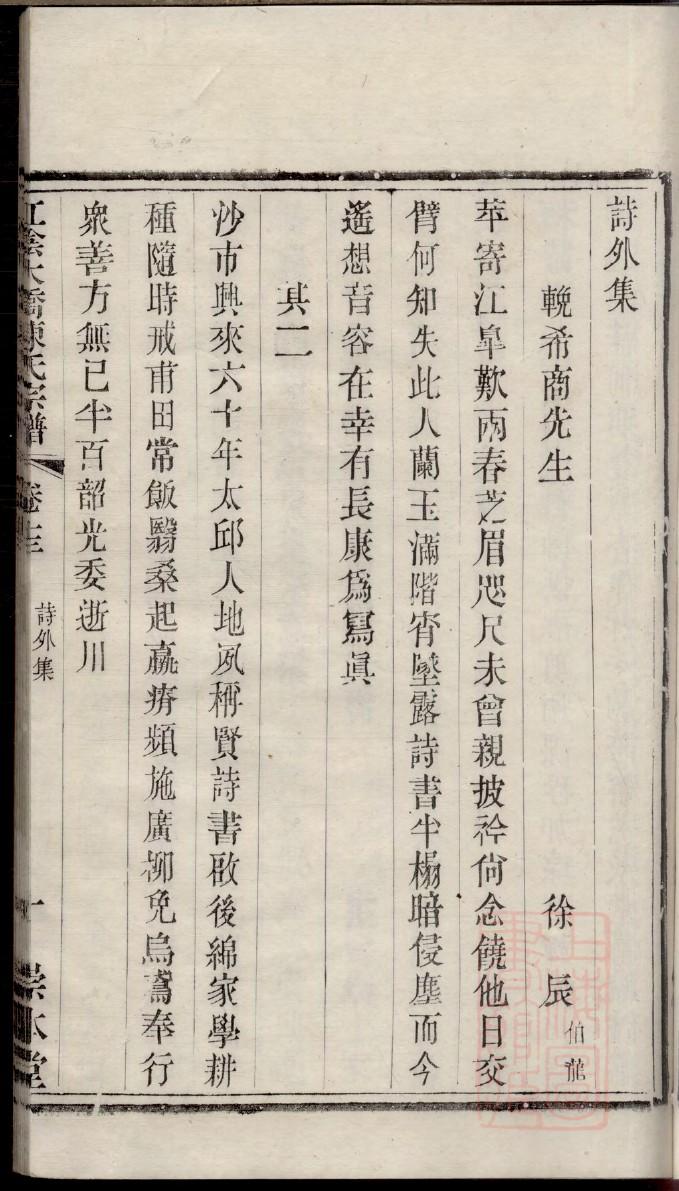 詩外集
輓希商先生
徐辰伯龍
萍寄江皐歎兩春芝眉咫尺未曾親披衿尙念饒他日交
臂何知失此人蘭玉滿階宵墜露詩書半榻暗侵塵而今
遙想音容在幸有長康爲寫眞
其二
沙市興來六十年太邱人地夙稱賢詩書啟後綿家學耕
種隨時戒甫田常飯翳桑起羸瘠頻施廣柳免烏鳶奉行
衆善方無已半百韶光委逝川
江陰大橋陳氏宗譜
卷十三
詩外集
一
崇本堂